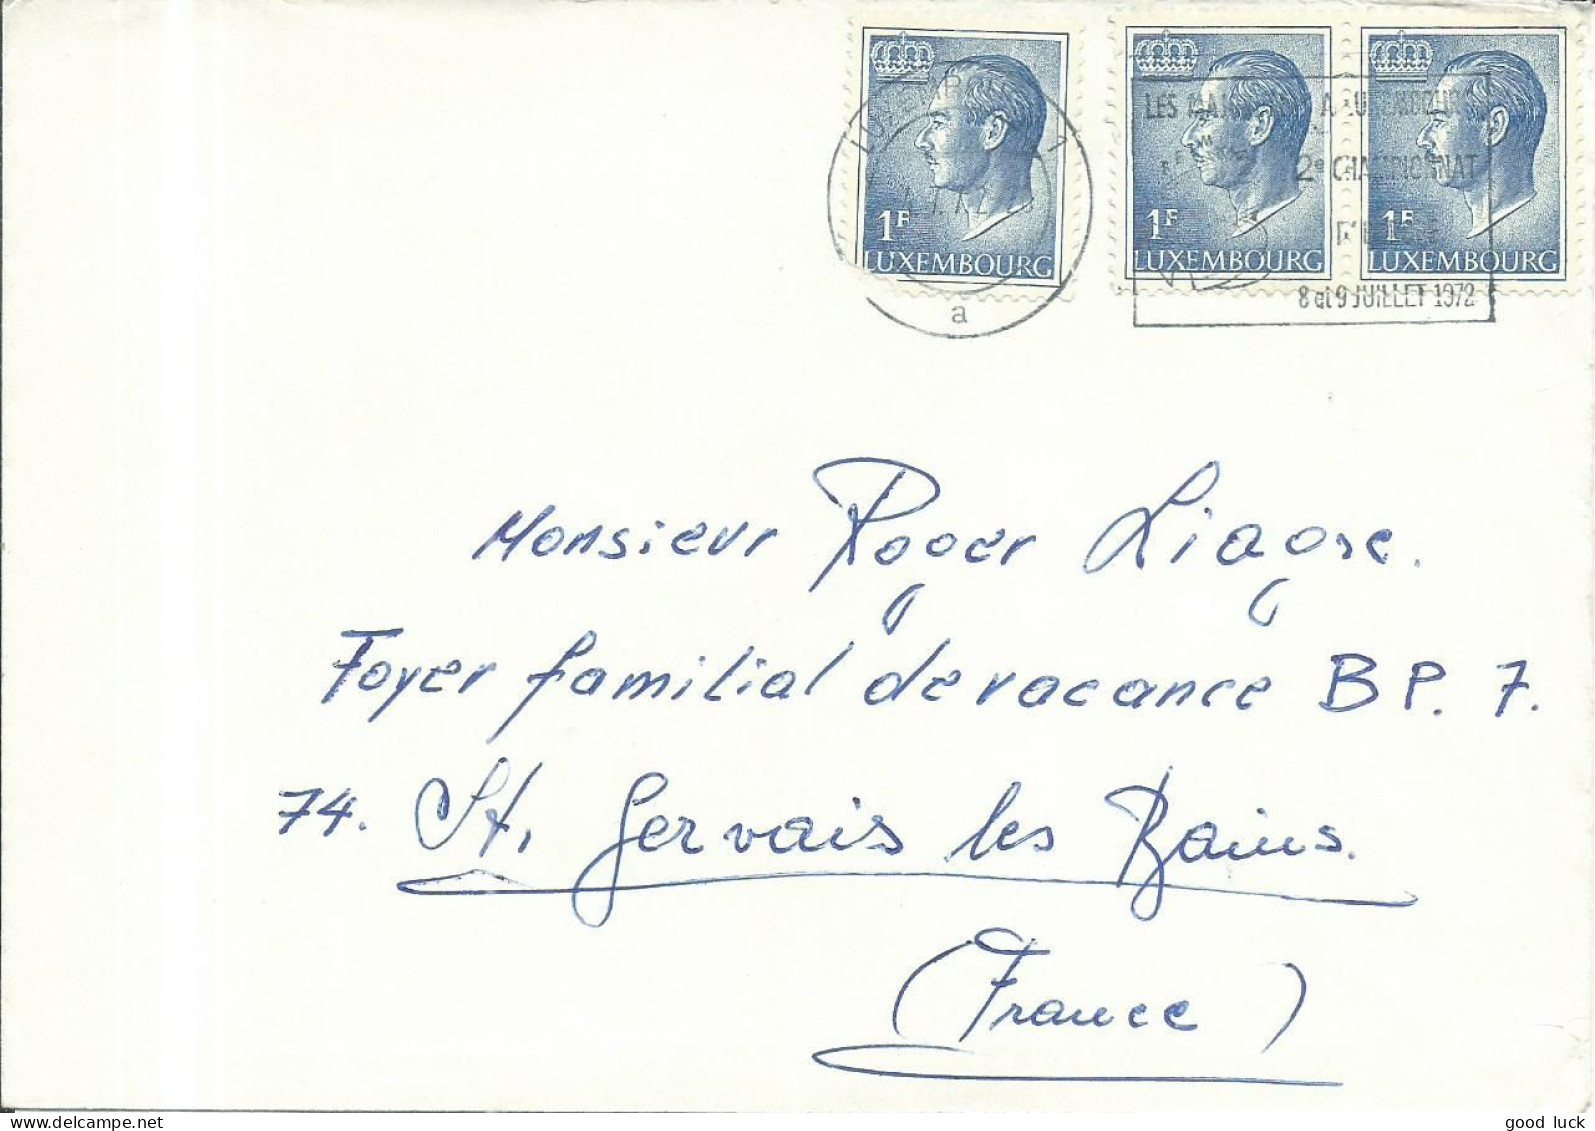 1F
LUXEMBOURG
1F
LUXEMBOURG
1F
LUXEMBOURG
a
2e CHAMPIONNAT
8 et 9 JUILLET 1972
Monsieur Roger Liagre.
Foyer familial de vacance BP. 7.
74. St. Gervais les Bains.
(France)
good luck